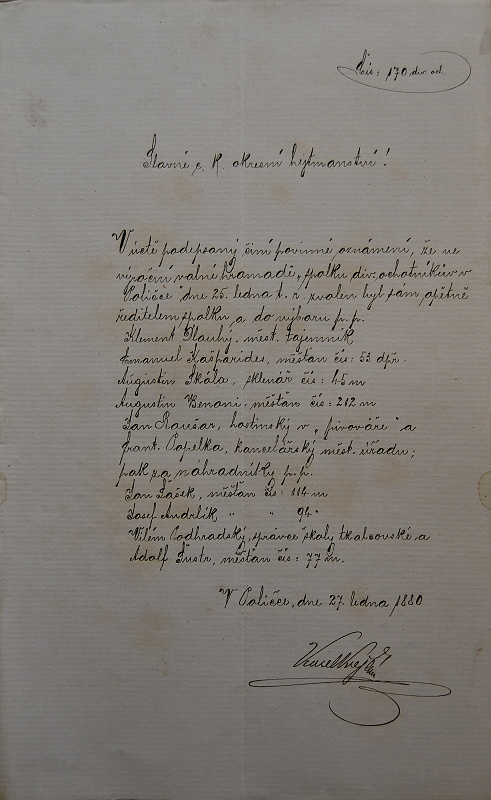 Čís: 170 div. och.
Slavné c. k. okresní hejtmanství!
V úctě podepsaný činí povinné oznámení, že ve
výroční valné hromadě „spolku div. ochotníkův v
Poličce“ dne 25. ledna t. r. zvolen byl sám opětně
ředitelem spolku a do výboru p. p.
Klement Dlouhý, měst. tajemník
Emanuel Kašparides, měšťan čís: 53 dpř.
Augustin Skála, sklenář čís: 45 m
Augustin Benoni. měšťan čís: 212 m
Jan Raušar, hostinský v „pivováře“ a
Frant. Čapelka, kancelářský měst. úřadu;
pak za náhradníky p. p.
Jan Šášek, měšťan čís: 114 m
Josef Andrlík " " 94 "
Vilém Podhradský, správce školy tkalcovské a
Adolf Šustr, měšťan čís: 77 m.
V Poličce, dne 27. ledna 1880
Karel